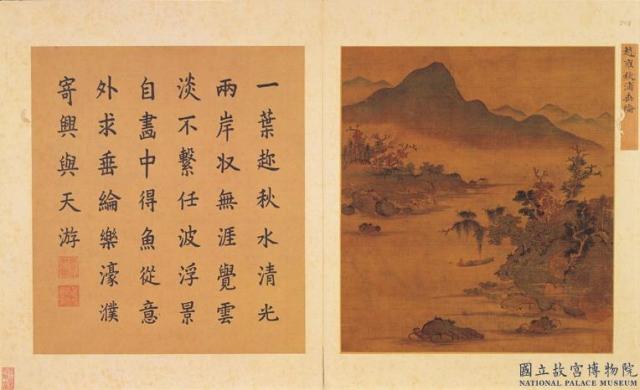 趙雍秋浦垂綸
一葉趂秋水清光
兩岸収無涯覺雲
淡不繫任波浮景
自畫中得魚從意
外求垂綸樂濠濮
寄興與天游
國立故宮博物院
NATIONAL PALACE MUSEUM